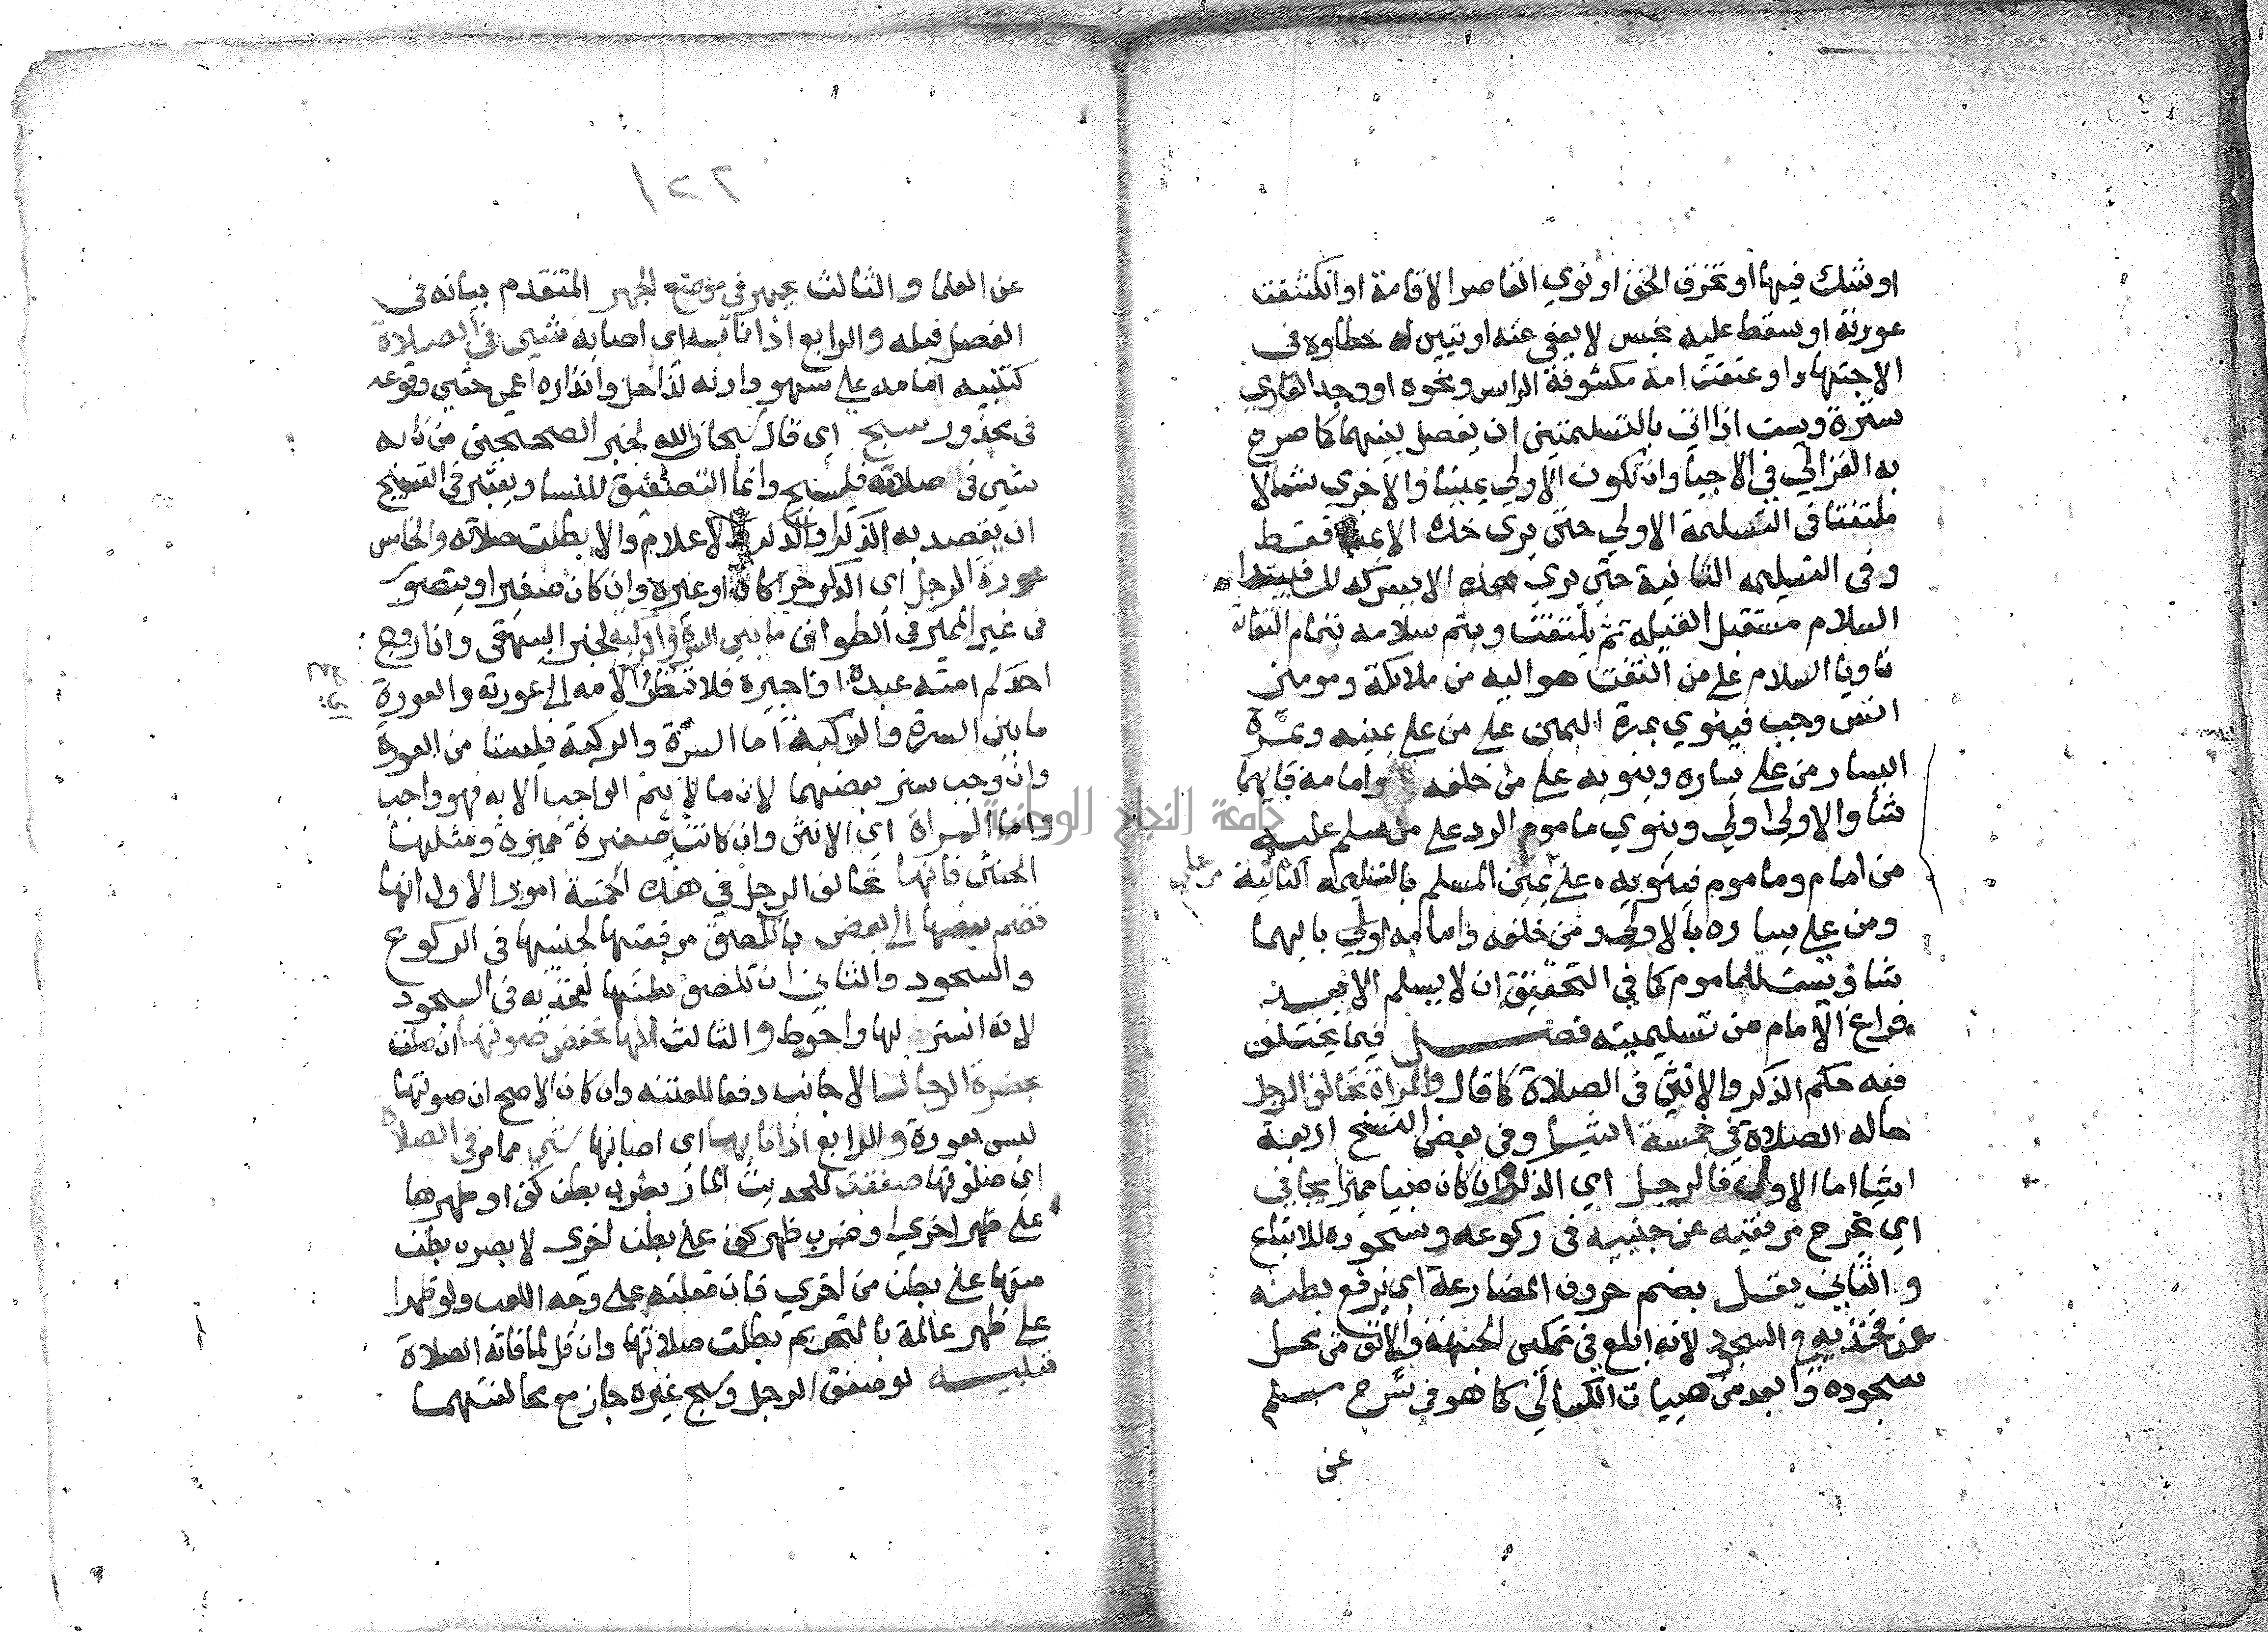 او شك فيها او تخرق الخف او نوي القاصر الاقامة او انكشفت
عورته او سقط عليه نجس لا يعفي عنه او تبين له خطاوه في
الاجتهاد او عتقت امة مكشوفة الراس ونحوه او وجد العاري
سترة ويسن اذا اتي بالتسليمتين ان يفصل بينهما كما صرح
به الغزالي في الاحيا وان تكون الاولي يمينا والاخري شمالا
ملتفتا في التسليمة الاولي حتي يري خده الايمن فقط
وفي التسليمه الثانية حتي يري خده الايسر كذلك فيبتدا
السلام مستقبل القبله ثم يلتفت ويتم سلامه بتمام التفاته
ناويا السلام علي من التفت هو اليه من ملائكة ومومني
انس وجن فينوي بمرة اليمين علي من علي يمينه وبمرة
اليسار من علي يساره وينويه علي من خلفه وامامه بايهما
شا والاولي اولي وينوي ماموم الرد علي من سلم عليه
من امام وماموم فينويه من علي يمين المسلم بالتسليمه الثانية
ومن علي يساره بالاولي ومن خلفه وامامه اولي بايهما
شا ويسن للماموم كما في التحقيق ان لا يسلم الا بعد
فراغ الامام من تسليمتيه فصل فيما يختلف
فيه حكم الذكر والانثي في الصلاة كما قال والمراة تخالف الرجل
حاله الصلاة في خمسة اشيا وفي بعض النسخ اربعة
اشيا اما الاول فالرجل اي الذكر وان كان صبيا مميزا يجافي
اي يخرج مرفقيه عن جنبيه في ركوعه وسجوده للاتباع
والثاني يقل بضم حروف المضارعة اي يرفع بطنه
عن فخذيه في السجود لانه ابلغ في تمكين الجبهة والانف من محل
سجوده وابعد من هييات الكسالي كما هو في شرح مسلم
عن
١٢٢
عن العلما والثالث يجهر في موضع الجهر المتقدم بيانه في
الفصل قبله والرابع اذا نابه اي اصابه شيي في الصلاة
كتنبيه امامه علي سهو واذنه لداخل وانذاره اعمي خشي وقوعه
في محذور سبح اي قال سبحان الله لخبر الصحيحين من نابه
شيي في صلاته فليسبح وانما التصفيق للنسا ويعتبر في التسبيح
ان يقصد به الذكر او الذكر والاعلام والا بطلت صلاته والخامس
عورة الرجل اي الذكر حرا كان او غيره وان كان صغيرا ويتصور
في غير المميز في الطواف ما بين السرة والركبه لخبر البيهقي واذا زوج
احدكم امته عبده او اجيره فلا تنظر الامه الي عورته والعورة
ما بين السرة والركبة اما السرة والركبة فليستا من العورة
وان وجب ستر بعضهما لان ما لا يتم الواجب الا به فهو واجب
واما المراة اي الانثي وان كانت صغيرة مميزة ومثلها
الخنثي فانها تخالف الرجل في هذه الخمسة امور الاول انها
تضم بعضها الي بعض بان تلصق مرفقيها لجنبيها في الركوع
والسجود والثاني ان تلصق بطنها لفخذيه في السجود
لانه استر لها واحوط والثالث انها تخفض صوتها ان صلت
بحضرة الرجال الاجانب دفعا للفتنه وان كان الاصح ان صوتها
ليس بعورة والرابع اذا نابها اي اصابها شي مما مر في الصلاة
اي صلوتها صفقت للحديث المار بضرب بطن كف او ظهرها
علي ظهر اخري او ضرب ظهر كف علي بطن اخري لا بضرب بطن
منها علي بطن من اخري فان فعلته علي وجه اللعب ولو ظهرا
علي ظهر عالمة بالتحريم بطلت صلاتها وان قل لمنافاته الصلاة
تنبيه لو صفق الرجل وسبح غيره جاز مع مخالفتهما
جامعة النجاح الوطنية